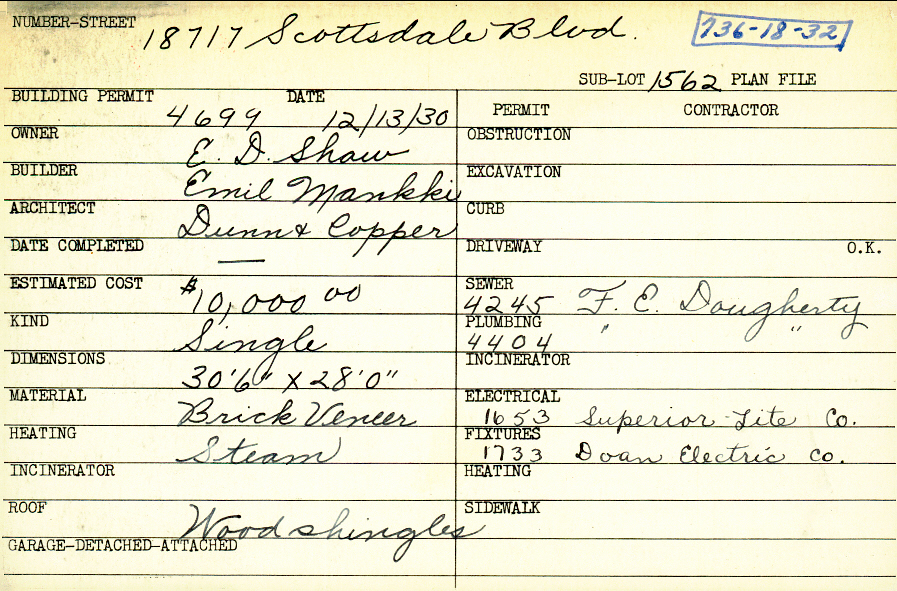 NUMBER-STREET 18717 Scottsdale Blvd. 736-18-32
SUB-LOT 1562 PLAN FILE
BUILDING PERMIT 4699 DATE 12/13/30
OWNER E. D. Shaw
BUILDER Emil Mankki
ARCHITECT Dunn & Copper
DATE COMPLETED —
ESTIMATED COST $10,000 00
KIND Single
DIMENSIONS 30'6" X 28'0"
MATERIAL Brick Veneer
HEATING Steam
INCINERATOR
ROOF Wood shingles
GARAGE-DETACHED-ATTACHED
PERMIT CONTRACTOR
OBSTRUCTION
EXCAVATION
CURB
DRIVEWAY O.K.
SEWER
4245 F. E. Dougherty
PLUMBING " "
4404
INCINERATOR
ELECTRICAL
1653 Superior Lite Co.
FIXTURES
1733 Doan Electric Co.
HEATING
SIDEWALK